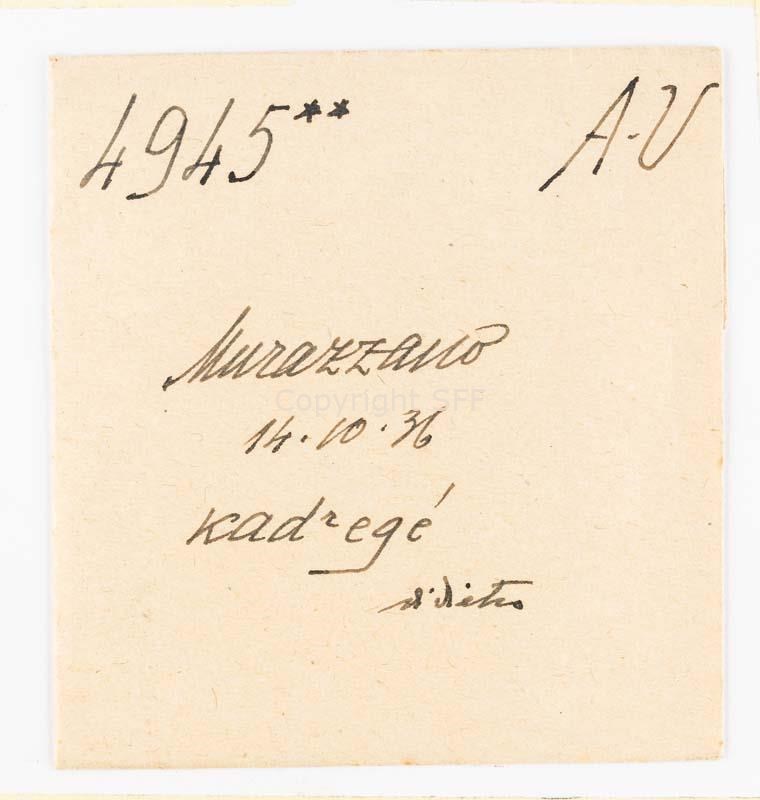 4945** A-V
Murazzano
Copyright SFF
14.10.36
kadʳegé